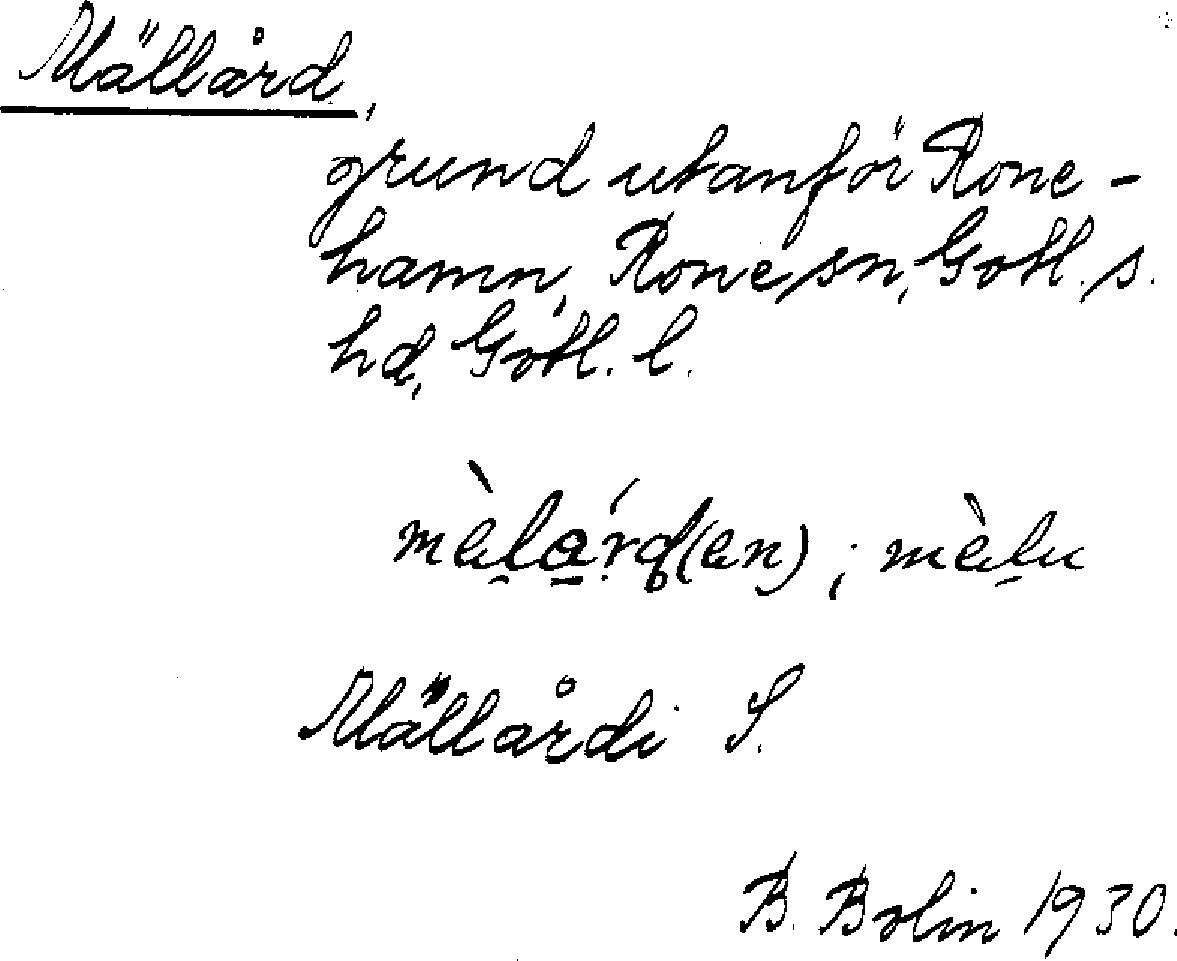 Mällård,
grund utanför Rone-
hamn, Rone sn, Gotl. s.
hd, Gotl. l.
Mällårdi S.
B. Bolin 1930.